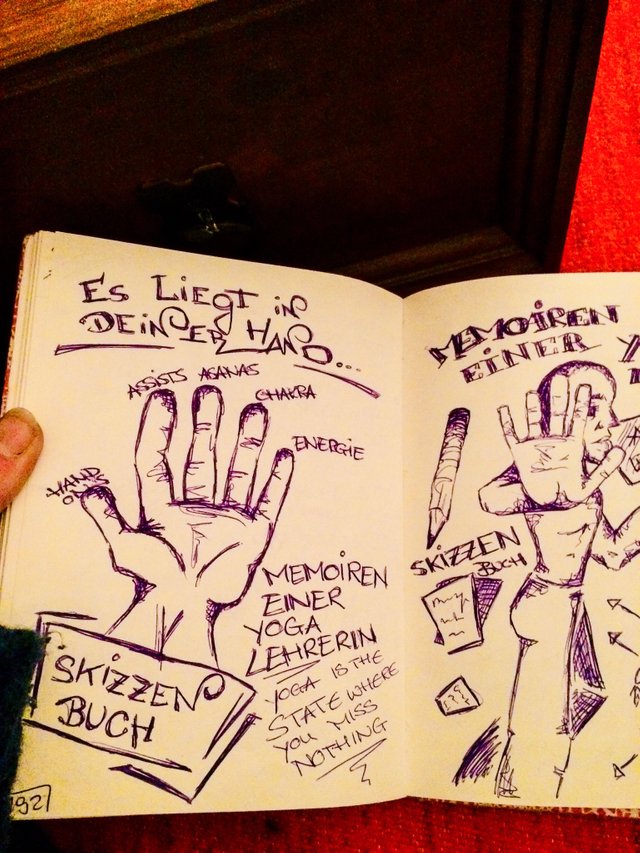 Es Liegt in
Deiner Hand...
Assists Asanas
Chakra
Energie
Hand
ons
Memoiren
einer
Yoga
Lehrerin
Yoga is the
state where
you miss
nothing
Skizzen
Buch
92
Memoiren
einer
Skizzen
Buch